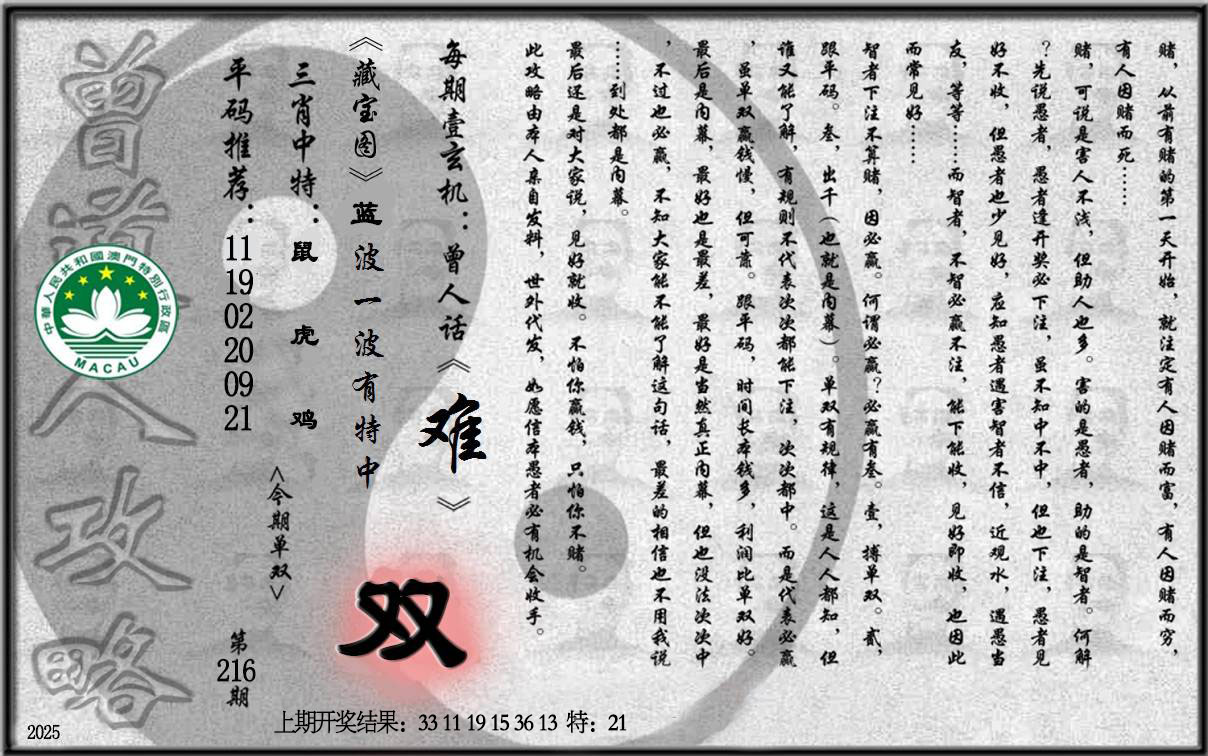 赌，从前有赌的第一天开始，就注定有人因赌而富，有人因赌而穷，
有人因赌而死……
赌，可说是害人不浅，但助人也多。害的是愚者，助的是智者。何解
？先说愚者，愚者逢开奖必下注，虽不知中不中，但也下注，愚者见
好不收，但愚者也少见好，应知愚者遇害智者不信，近观水，遇愚当
友，等等……而智者，不智必赢不注，能下能收，见好即收，也因此
而常见好……
智者下注不算赌，因必赢。何谓必赢？必赢有叁。壹，搏单双。贰，
跟平码。叁，出千（也就是内幕）。单双有规律，这是人人都知，但
谁又能了解，有规则不代表次次都能下注，次次都中。而是代表必赢
，虽单双赢钱慢，但可靠。跟平码，时间长本钱多，利润比单双好。
最后是内幕，最好也是最差，最好是当然真正内幕，但也没法次次中
，不过也必赢，不知大家能不能了解这句话，最差的相信也不用我说
……到处都是内幕。
最后还是对大家说，见好就收。不怕你赢钱，只怕你不赌。
此攻略由本人亲自发料，世外代发，如愿信本愚者必有机会收手。
每期壹玄机：曾人话《难》
《藏宝图》蓝波一波有特中
双
三肖中特：鼠 虎 鸡
<今期单双>
平码推荐：11 19 02 20 09 21
第216期
曾道人攻略
中華人民共和國澳門特別行政區
MACAU
上期开奖结果：33 11 19 15 36 13 特：21
2025